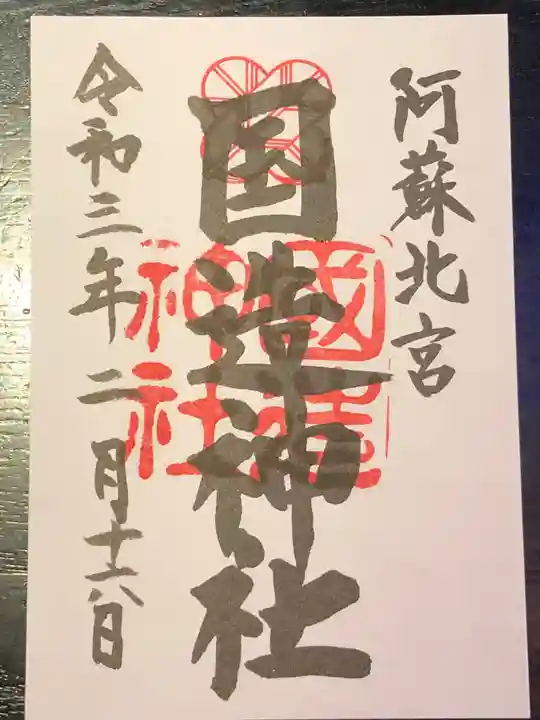 阿蘇北宮
国造神社
國造神社
令和三年二月十六日